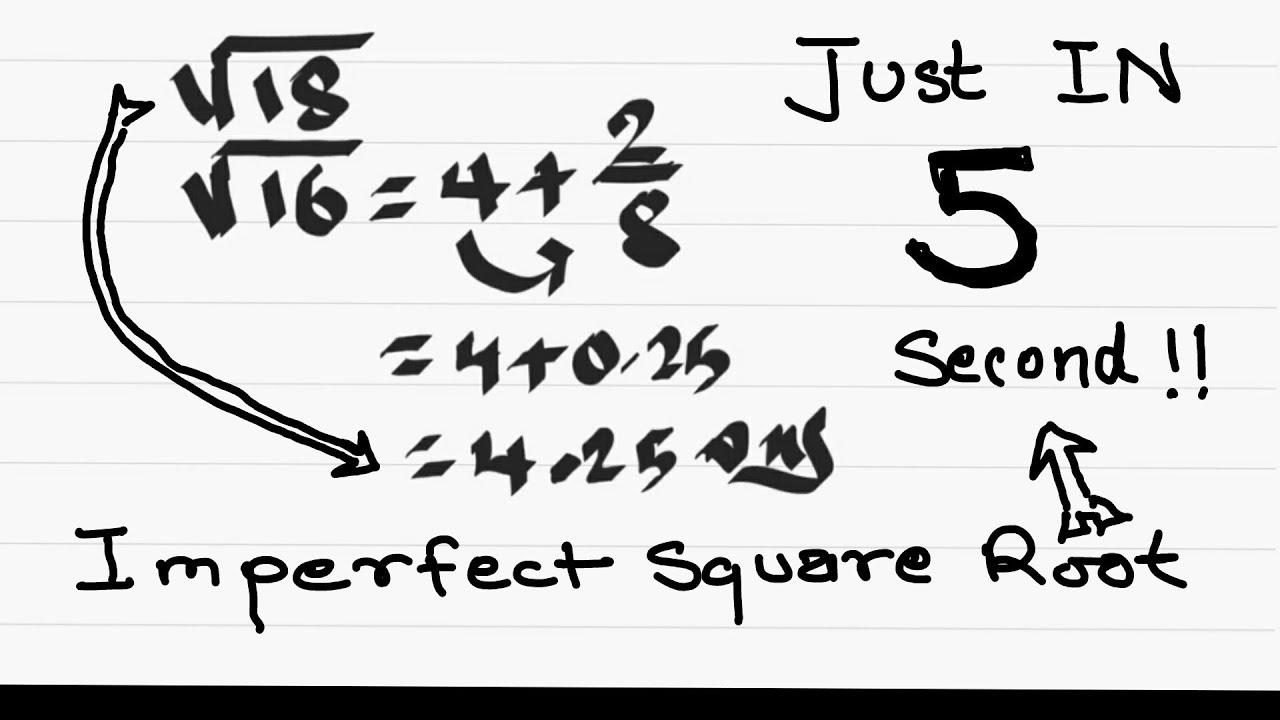 √18
√16 = 4 + 2/8
= 4 + 0.25
= 4.25 ans
Just IN
5
Second !!
Imperfect Square Root